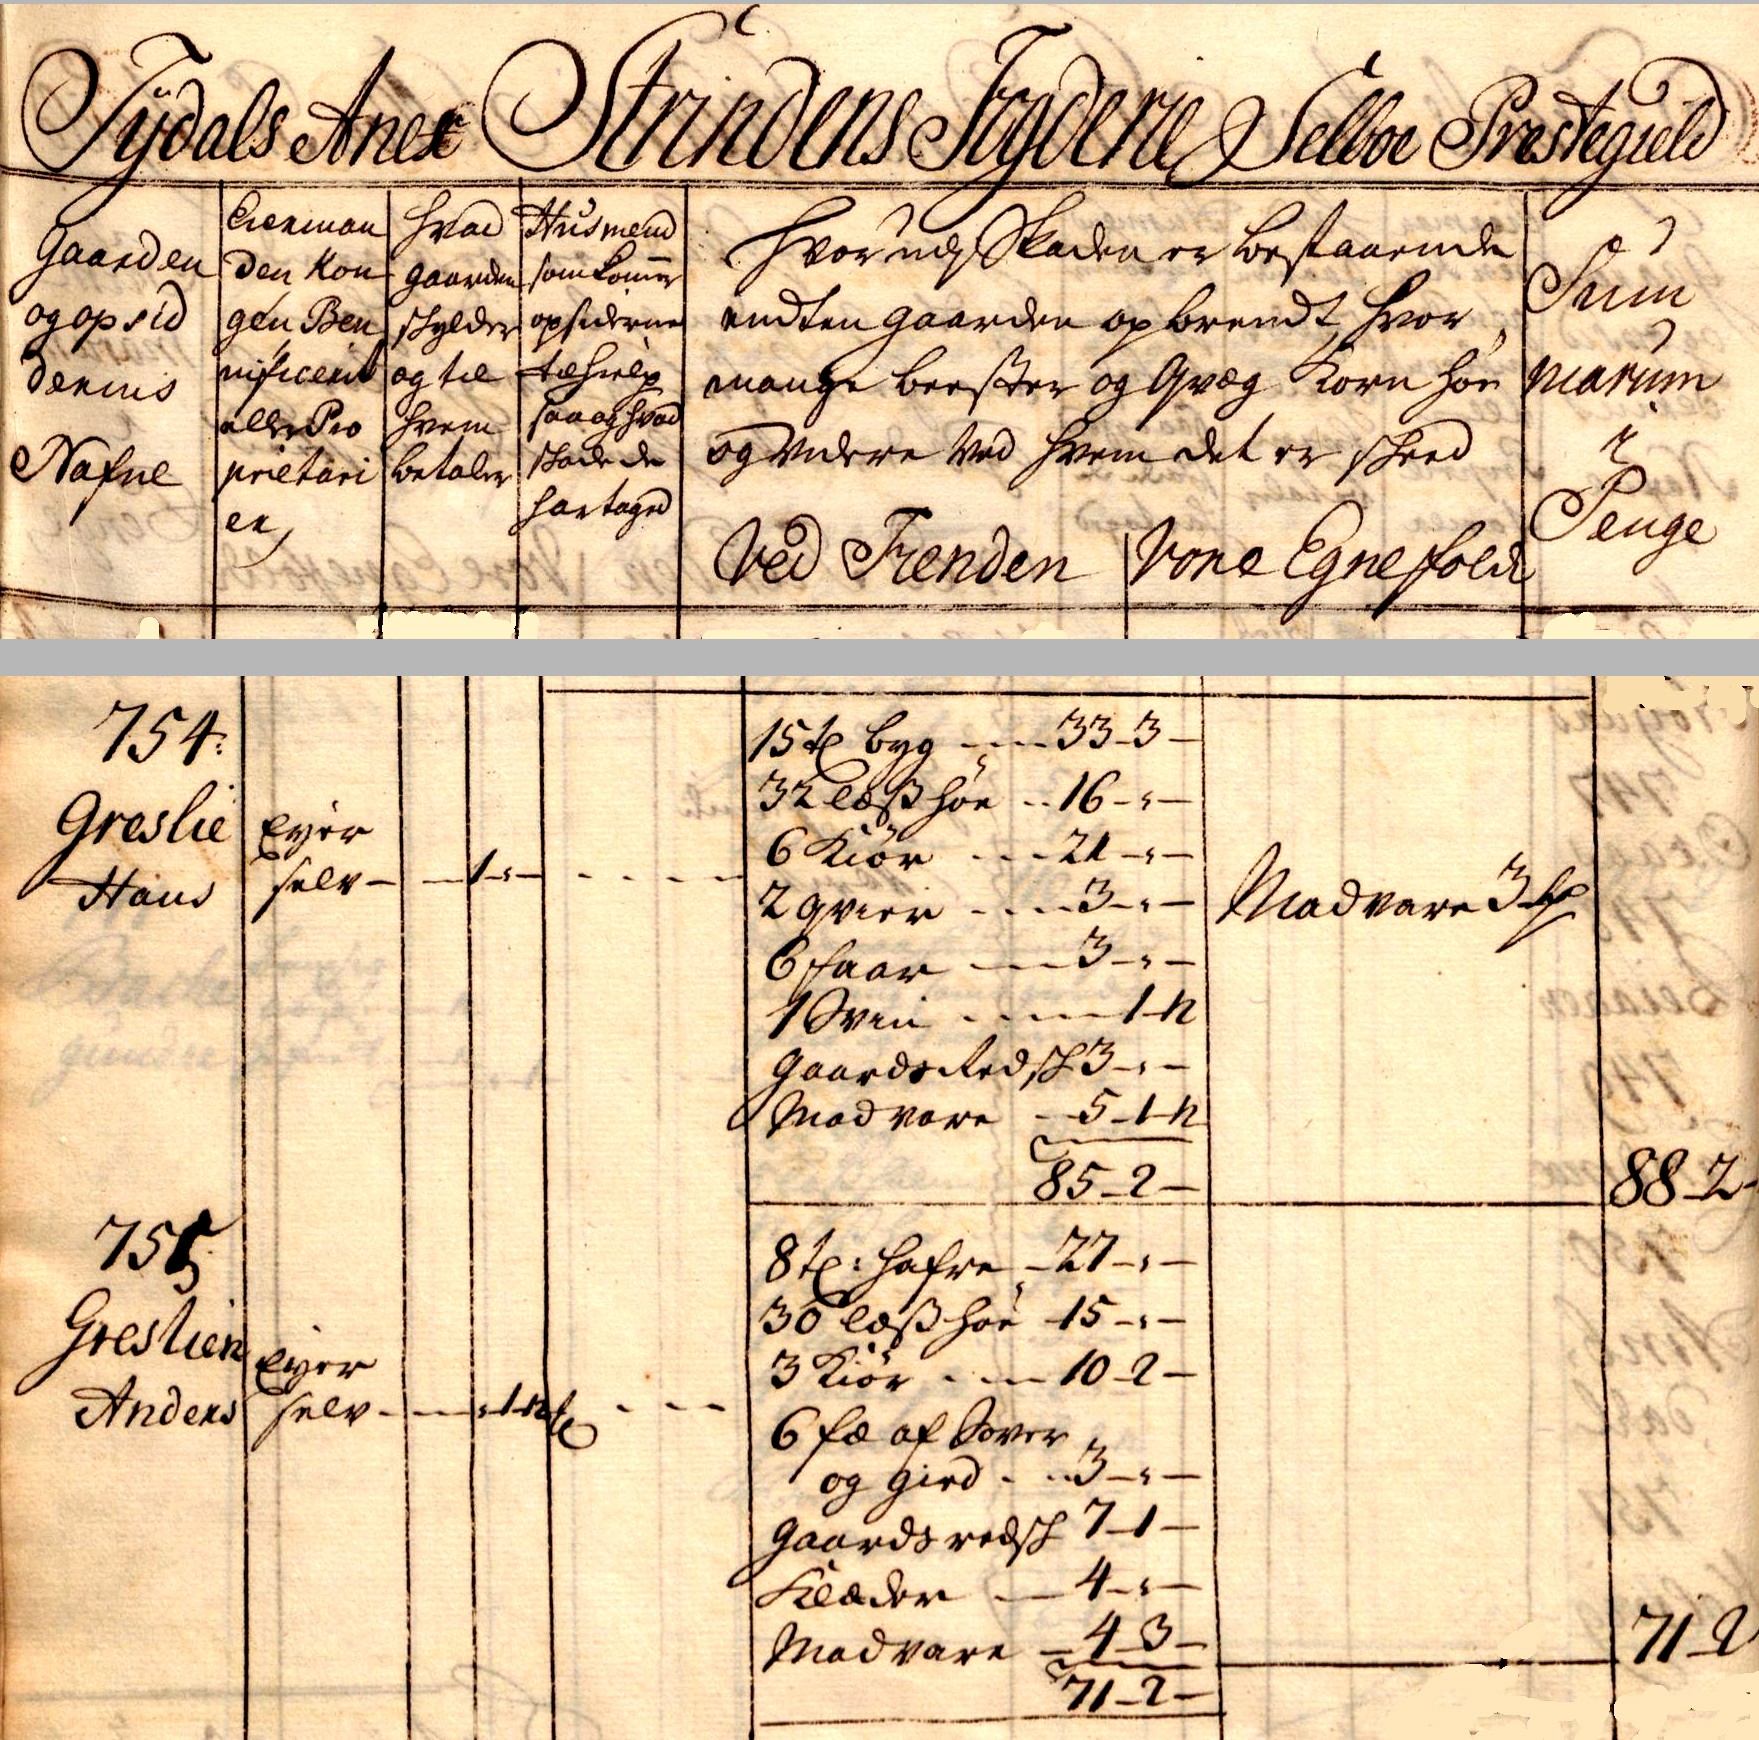 Tÿdals Anex Strindens Fogderie Selboe Prestegield
Gaarden
og opsid
dernis
Nafne
Eierman
den Kon
gen Ben
nificerit
eller Pro
prietari
er
Hvad
gaarden
skylder
og til
hvem
betaler
Husmend
som komer
opsiderne
til hielp
saa og hvad
skade de
har taged
Hvor udj Skaden er bestaaende
endten gaarden opbrendt, hvor
mange beester og Qvæg Korn høe
og videre ved hvem det er skeed
Ved Fienden
Vore Egne folck
Sum
marum
i
Penge
754:
Greslie
Hans
Eyer
selv - - 1 - " -
15 tr byg - 33 - 3 -
32 læss høe - 16 - " -
6 Kiør - 21 - " -
2 qvier - 3 - " -
6 faar - 3 - " -
1 Svin - 1 - 12
Gaards Redsk 3 - " -
Madvare - 5 - 1 - 12
85 - 2 -
Madvare 3 rdr
88 - 2 -
755
Greslien
Anders
Eyer
selv - - " - 1 - 12
8 tr: hafre - 27 - " -
30 læss høe - 15 - " -
3 Kiør - 10 - 2 -
6 fæ af Sover
og gied - 3 - " -
Gaards redsk 7 - 1 -
Klæder - 4 - " -
Madvare - 4 - 3 -
71 - 2 -
71 - 2